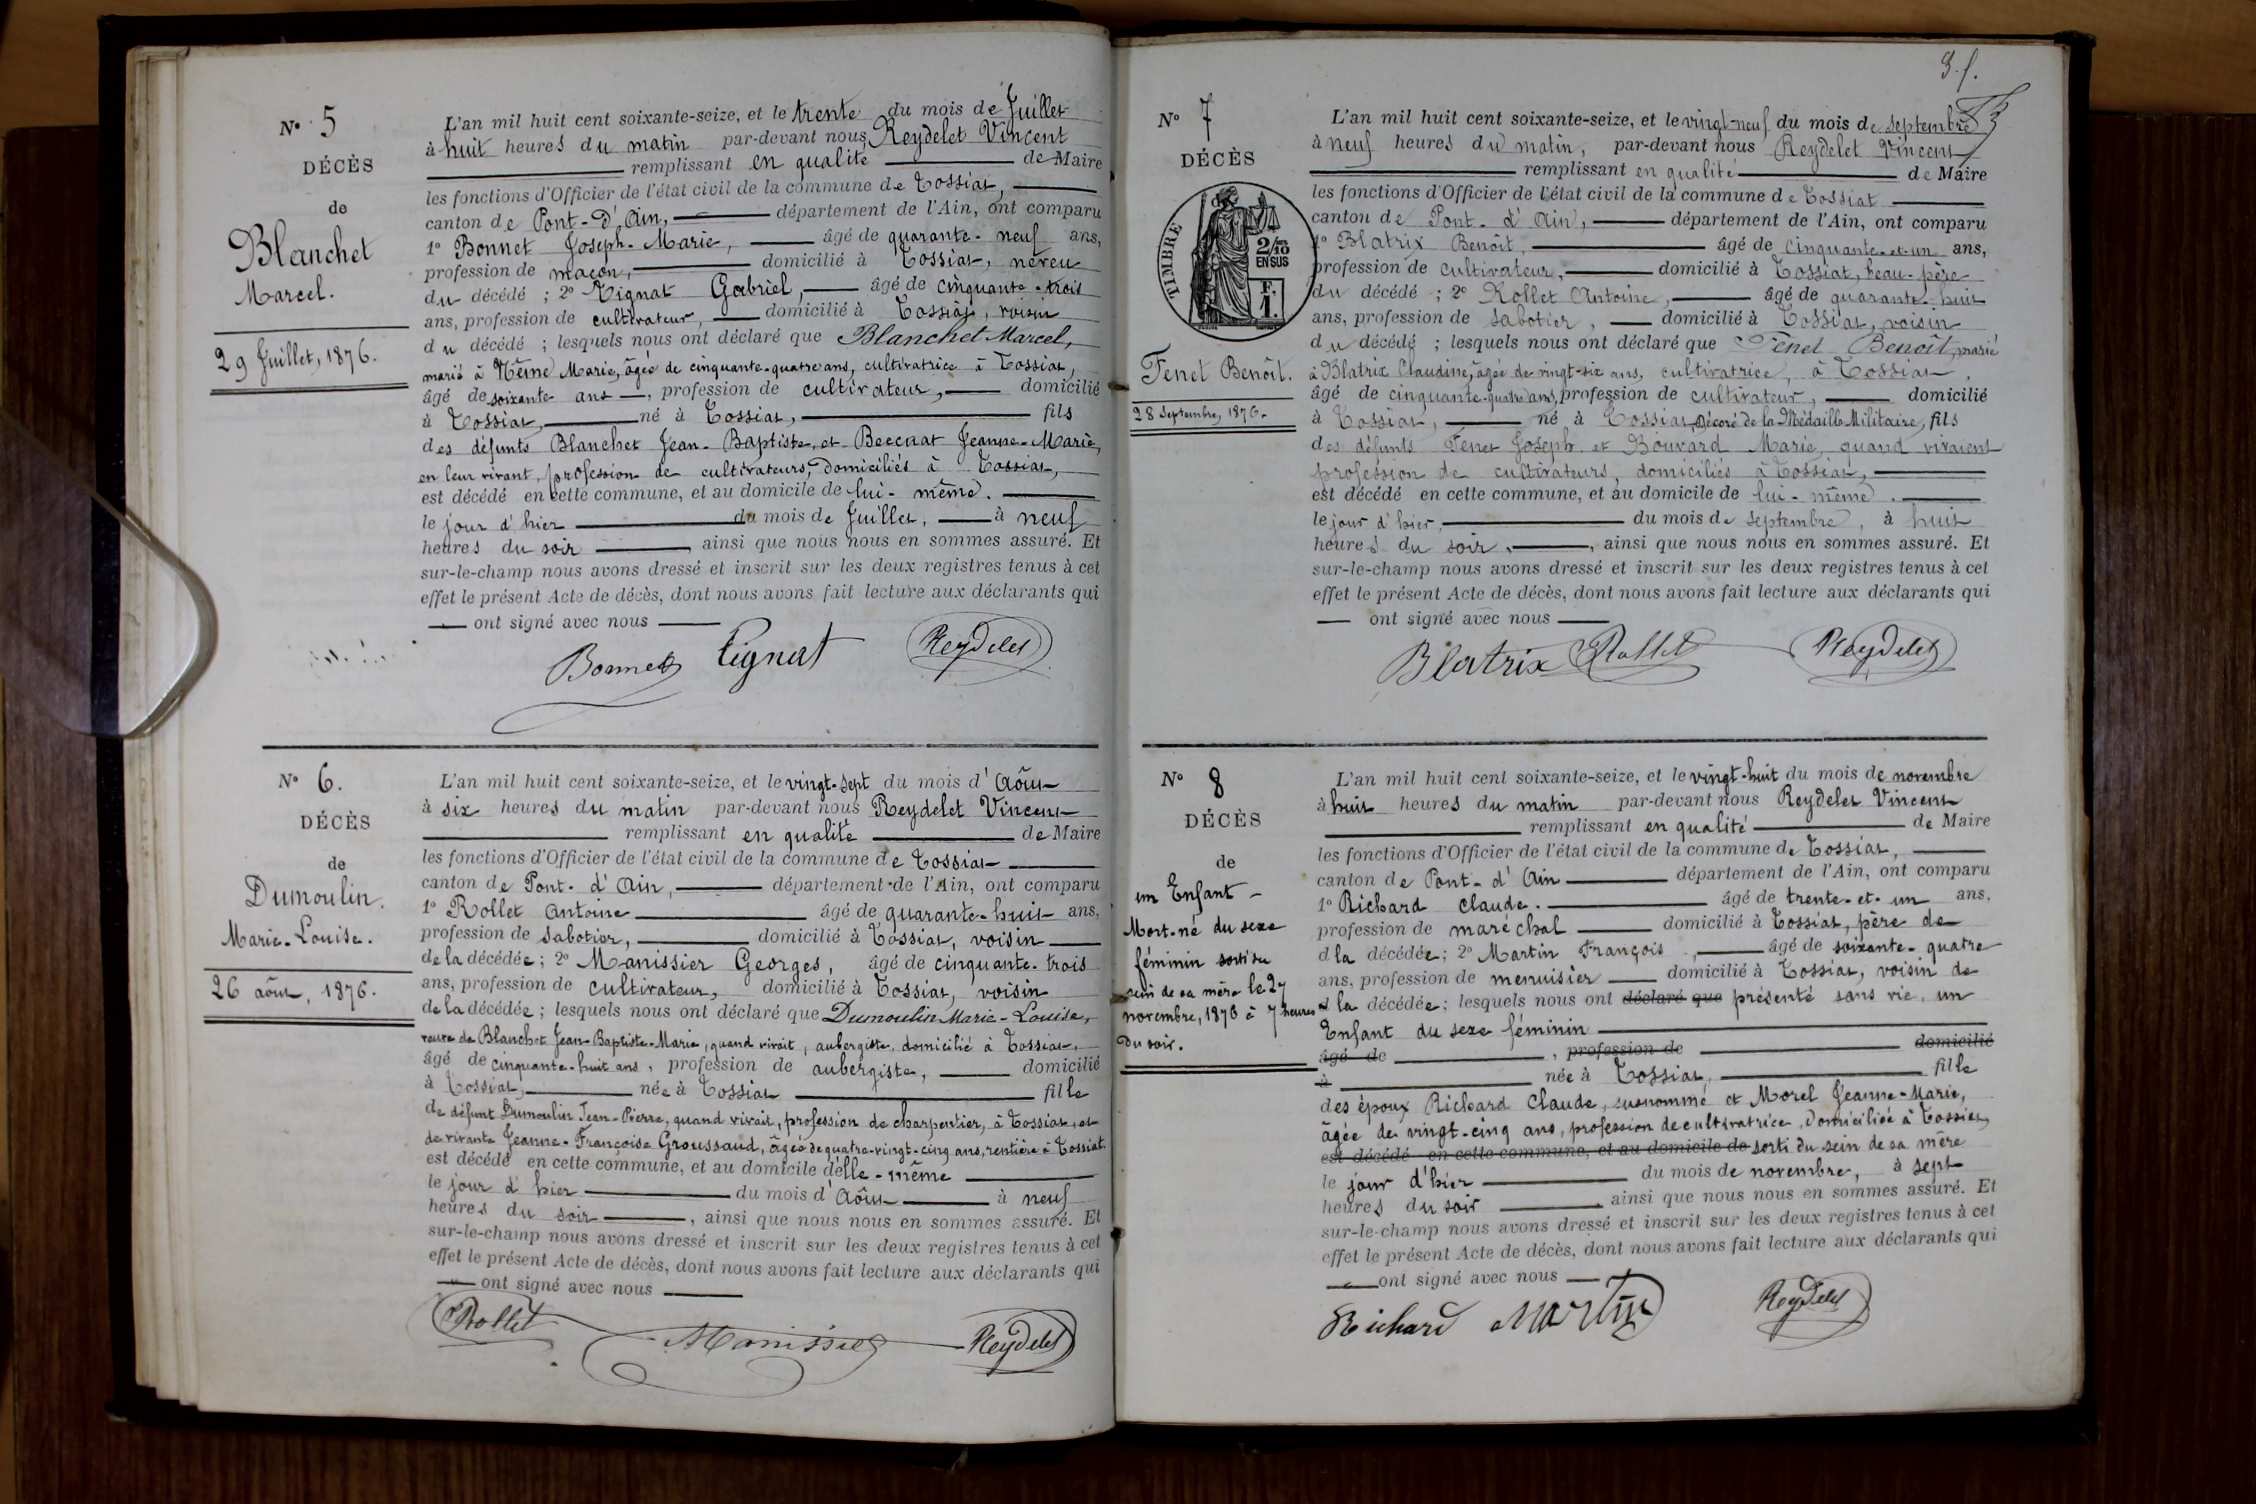 N° 5
DÉCÈS
de
Blanchet
Marcel.
29 Juillet, 1876.
L'an mil huit cent soixante-seize, et le trente du mois de Juillet
à huit heures du matin par-devant nous Reydelet Vincent
remplissant en qualité de Maire
les fonctions d'Officier de l'état civil de la commune de Tossiat,
canton de Pont-d'Ain, département de l'Ain, ont comparu
1° Bonnet Joseph-Marie, âgé de quarante-neuf ans,
profession de maçon, domicilié à Tossiat, neveu
du décédé ; 2° Tignat Gabriel, âgé de cinquante-trois
ans, profession de cultivateur, domicilié à Tossiat, voisin
du décédé ; lesquels nous ont déclaré que Blanchet Marcel,
marié à Marie, âgée de cinquante-quatre ans, cultivatrice à Tossiat,
âgé de soixante ans, profession de cultivateur, domicilié
à Tossiat, né à Tossiat, fils
des défunts Blanchet Jean-Baptiste et Jeanne-Marie,
en leur vivant, profession de cultivateurs, domiciliés à Tossiat,
est décédé en cette commune, et au domicile de lui-même.
le jour d'hier du mois de Juillet, à neuf
heures du soir, ainsi que nous nous en sommes assuré. Et
sur-le-champ nous avons dressé et inscrit sur les deux registres tenus à cet
effet le présent Acte de décès, dont nous avons fait lecture aux déclarants qui
ont signé avec nous
Bonnet Tignat Reydelet
N° 6.
DÉCÈS
de
Dumoulin.
Marie-Louise.
26 aôut, 1876.
L'an mil huit cent soixante-seize, et le vingt-sept du mois d'Aôut
à six heures du matin par-devant nous Reydelet Vincent
remplissant en qualité de Maire
les fonctions d'Officier de l'état civil de la commune de Tossiat
canton de Pont-d'Ain, département de l'Ain, ont comparu
1° Rollet Antoine âgé de quarante-huit ans,
profession de sabotier, domicilié à Tossiat, voisin
de la décédée ; 2° Manissier Georges, âgé de cinquante-trois
ans, profession de cultivateur, domicilié à Tossiat, voisin
de la décédée ; lesquels nous ont déclaré que Dumoulin Marie-Louise,
veuve de Blanchet Jean-Baptiste-Marie, quand vivait, aubergiste, domicilié à Tossiat,
âgé de cinquante-huit ans, profession de aubergiste, domicilié
à Tossiat, née à Tossiat fille
de défunt Dumoulin Jean-Pierre, quand vivait, profession de charpentier, à Tossiat, et
de vivante Jeanne-Françoise Groussaud, âgée de quatre-vingt-cinq ans, rentière à Tossiat.
est décédé en cette commune, et au domicile d'elle-même
le jour d'hier du mois d'Aôut à neuf
heures du soir, ainsi que nous nous en sommes assuré. Et
sur-le-champ nous avons dressé et inscrit sur les deux registres tenus à cet
effet le présent Acte de décès, dont nous avons fait lecture aux déclarants qui
ont signé avec nous
Rollet Manissier Reydelet
N° 7
DÉCÈS
TIMBRE
2/10
EN SUS
F.
1.
Fenet Benoît.
28 Septembre, 1876.
L'an mil huit cent soixante-seize, et le vingt-neuf du mois de septembre
à neuf heures du matin, par-devant nous Reydelet Vincent
remplissant en qualité de Maire
les fonctions d'Officier de l'état civil de la commune de Tossiat
canton de Pont-d'Ain, département de l'Ain, ont comparu
1° Blatrix Benoît, âgé de cinquante-et-un ans,
profession de cultivateur, domicilié à Tossiat, beau-père
du décédé ; 2° Rollet Antoine, âgé de quarante-huit
ans, profession de sabotier, domicilié à Tossiat, voisin
du décédé ; lesquels nous ont déclaré que Fenet Benoît, marié
à Blatrix Claudine, âgée de vingt-six ans, cultivatrice, à Tossiat,
âgé de cinquante-quatre ans, profession de cultivateur, domicilié
à Tossiat, né à Tossiat, Décoré de la Médaille Militaire, fils
des défunts Fenet Joseph et Bouvard Marie, quand vivaient
profession de cultivateurs, domiciliés à Tossiat,
est décédé en cette commune, et au domicile de lui-même.
le jour d'hier, du mois de septembre, à huit
heures du soir, ainsi que nous nous en sommes assuré. Et
sur-le-champ nous avons dressé et inscrit sur les deux registres tenus à cet
effet le présent Acte de décès, dont nous avons fait lecture aux déclarants qui
ont signé avec nous
Blatrix Rollet Reydelet
N° 8
DÉCÈS
de
un Enfant
Mort-né du sexe
féminin sorti du
sein de sa mère le 27
novembre, 1876 à 7 heures
du soir.
L'an mil huit cent soixante-seize, et le vingt-huit du mois de novembre
à huit heures du matin par-devant nous Reydelet Vincent
remplissant en qualité de Maire
les fonctions d'Officier de l'état civil de la commune de Tossiat,
canton de Pont-d'Ain département de l'Ain, ont comparu
1° Richard Claude. âgé de trente-et-un ans,
profession de maréchal domicilié à Tossiat, père de
d la décédée ; 2° Martin François, âgé de soixante-quatre
ans, profession de menuisier domicilié à Tossiat, voisin de
d la décédée ; lesquels nous ont déclaré que présenté sans vie, un
Enfant du sexe féminin
âgé de , profession de domicilié
à née à Tossiat, fille
des époux Richard Claude, susnommé et Morel Jeanne-Marie,
âgée de vingt-cinq ans, profession de cultivatrice, domiciliée à Tossiat,
est décédé en cette commune, et au domicile de sorti du sein de sa mère
le jour d'hier du mois de novembre, à sept
heures du soir ainsi que nous nous en sommes assuré. Et
sur-le-champ nous avons dressé et inscrit sur les deux registres tenus à cet
effet le présent Acte de décès, dont nous avons fait lecture aux déclarants qui
ont signé avec nous
Richard Martin Reydelet